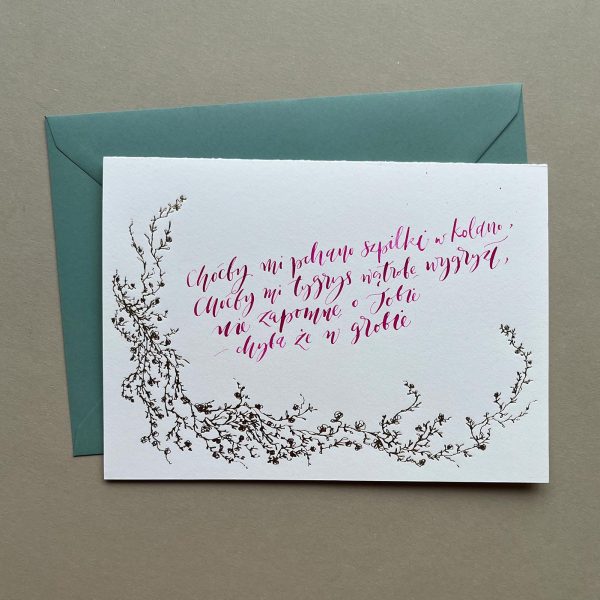 Choćby mi pchano szpilkę w kolano,
Choćby mi tygrys wątrobę wygryzł,
nie zapomnę o Tobie
– chyba że w grobie